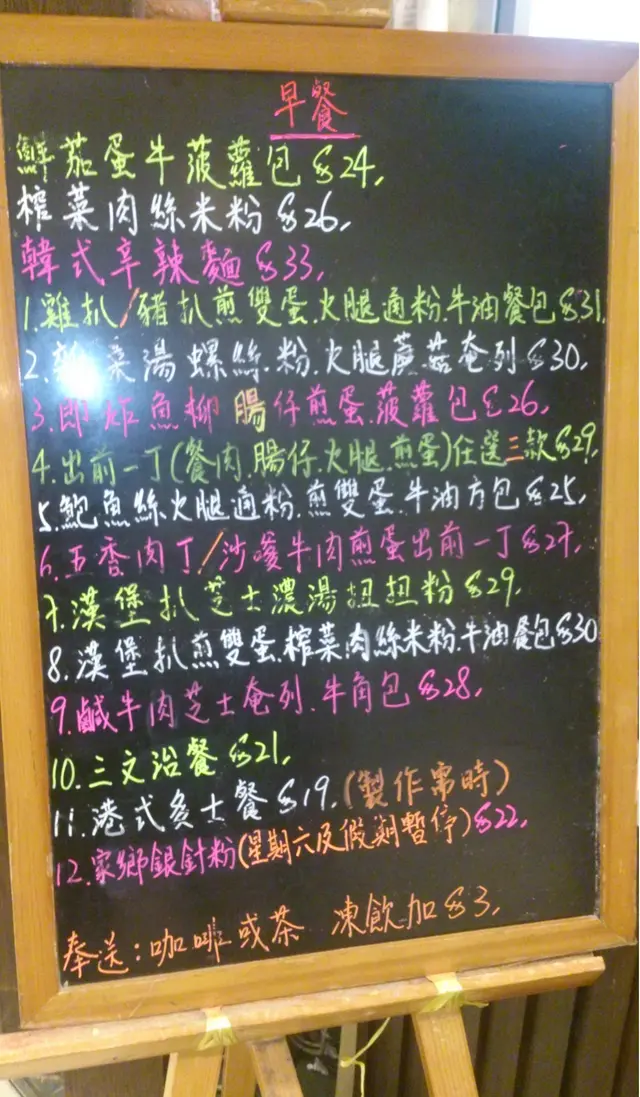 早餐
鮮茄蛋牛菠蘿包$24,
榨菜肉絲米粉$26,
韓式辛辣麵$33,
1.雞扒/豬扒煎雙蛋.火腿通粉.牛油餐包$31.
2.菜湯螺絲.粉.火腿蘑菇奄列$30,
3.即炸魚柳腸仔煎蛋.菠蘿包$26,
4.出前一丁(餐肉.腸仔.火腿.煎蛋)任選三款$29,
5.鮑魚絲火腿通粉.煎雙蛋.牛油方包$25,
6.五香肉丁/沙嗲牛肉煎蛋出前一丁$27,
7.漢堡扒芝士濃湯扭扭粉$29,
8.漢堡扒煎雙蛋.榨菜肉絲米粉.牛油餐包$30
9.鹹牛肉芝士奄列.牛角包$28,
10.三文治餐$21,
11.港式多士餐$19.(製作需時)
12.家鄉銀針粉(星期六及假期暫停)$22,
奉送:咖啡或茶 凍飲加$3,